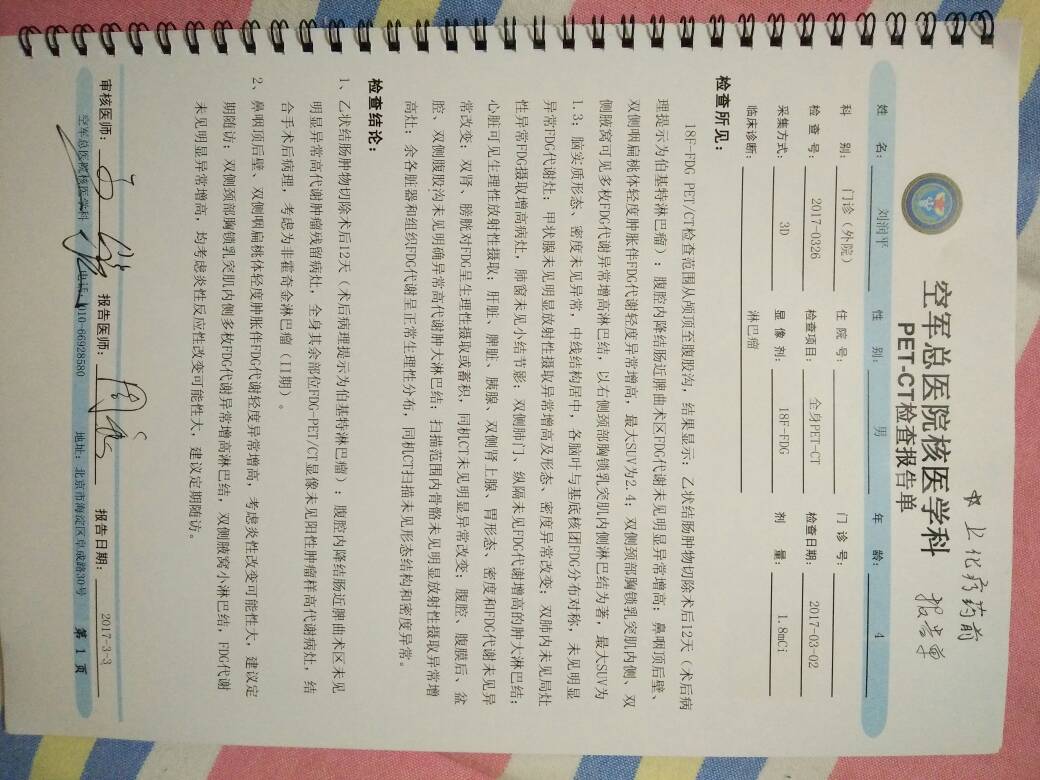 上化疗药前
报告单
空军总医院核医学科
PET-CT检查报告单
姓 名： 刘润平 性 别： 男 年 龄： 4
科 别： 门诊（外院） 住 院 号： 门 诊 号：
检 查 号： 2017-0326 检查项目： 全身PET-CT 检查日期： 2017-03-02
采集方式： 3D 显 像 剂： 18F-FDG 剂 量： 1.8mCi
临床诊断： 淋巴瘤
检查所见：
18F-FDG PET/CT检查范围从颅顶至腹股沟，结果显示：乙状结肠肿物切除术后12天（术后病
理提示为伯基特淋巴瘤）：腹腔内降结肠近脾曲术区FDG代谢未见明显异常增高；鼻咽顶后壁、
双侧咽扁桃体轻度肿胀伴FDG代谢轻度异常增高，最大SUV为2.4；双侧颈部胸锁乳突肌内侧、双
侧腋窝可见多枚FDG代谢异常增高淋巴结，以右侧颈部胸锁乳突肌内侧淋巴结为著，最大SUV为
1.3；脑实质形态、密度未见异常，中线结构居中，各脑叶与基底核团FDG分布对称，未见明显
异常FDG代谢灶；甲状腺未见明显放射性摄取异常增高及形态、密度异常改变；双肺内未见局灶
性异常FDG摄取增高病灶，肺窗未见小结节影；双侧肺门、纵隔未见FDG代谢增高的肿大淋巴结；
心脏可见生理性放射性摄取；肝脏、脾脏、胰腺、双侧肾上腺、胃形态、密度和FDG代谢未见异
常改变；双肾、膀胱对FDG呈生理性摄取或蓄积，同机CT未见明显异常改变；腹腔、腹膜后、盆
腔、双侧腹股沟未见明确异常高代谢肿大淋巴结；扫描范围内骨骼未见明显放射性摄取异常增
高灶；余各脏器和组织FDG代谢呈正常生理性分布，同机CT扫描未见形态结构和密度异常。
检查结论：
1、乙状结肠肿物切除术后12天（术后病理提示为伯基特淋巴瘤）：腹腔内降结肠近脾曲术区未见
明显异常高代谢肿瘤残留病灶，全身其余部位FDG-PET/CT显像未见阳性肿瘤样高代谢病灶，结
合手术后病理，考虑为非霍奇金淋巴瘤（II期）。
2、鼻咽顶后壁、双侧咽扁桃体轻度肿胀伴FDG代谢轻度异常增高，考虑炎性改变可能性大，建议定
期随访；双侧颈部胸锁乳突肌内侧多枚FDG代谢异常增高淋巴结，双侧腋窝小淋巴结，FDG代谢
未见明显异常增高，均考虑炎性反应性改变可能性大，建议定期随访。
审核医师： 报告医师： 报告日期： 2017-3-3
空军总医院核医学科 电话：010-66928580 地址：北京市海淀区阜成路30号 第 1 页